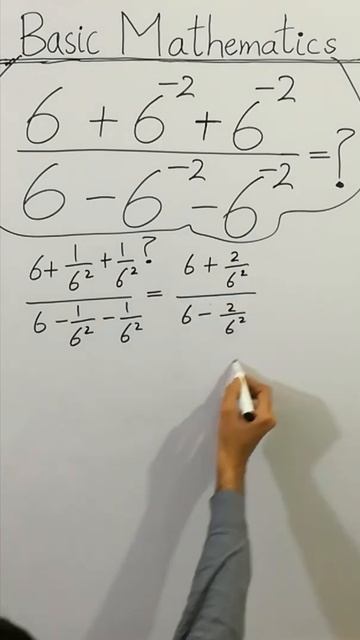 Basic Mathematics
6 + 6^-2 + 6^-2
6 - 6^-2 - 6^-2
= ?
6 + 1/6² + 1/6² ?
6 - 1/6² - 1/6²
=
6 + 2/6²
6 - 2/6²